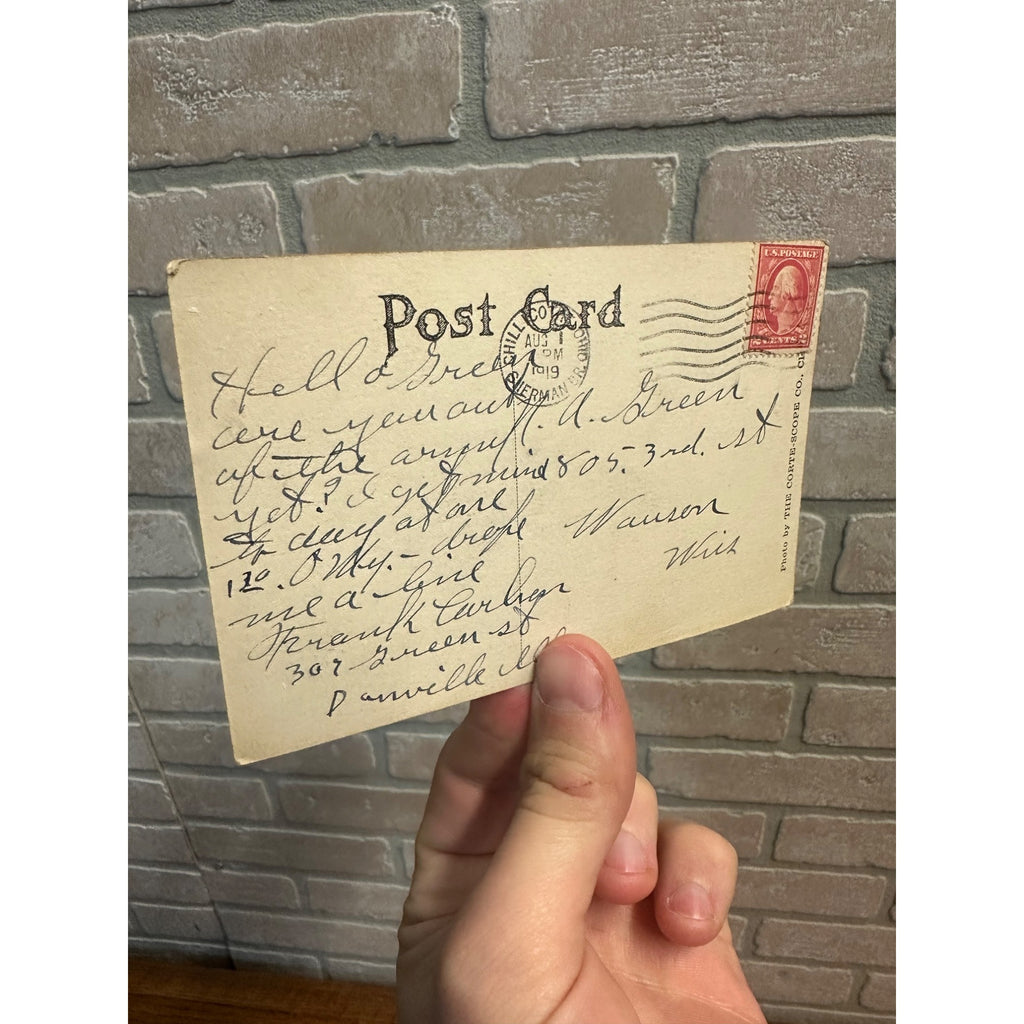 Post Card
U.S. POSTAGE
2 CENTS 2
CHILLICOTHE, OHIO
AUG 1
PM
1919
SHERMAN BR.
Hello Green
are you out
of the army
yet? I get mind
to day at one
130. O My. - drope
me a line
Frank Carlson
307 Green st
Danville Ill
A. Green
805. 3rd. st
Wauson
Wis
Photo by THE CORTE-SCOPE CO.,